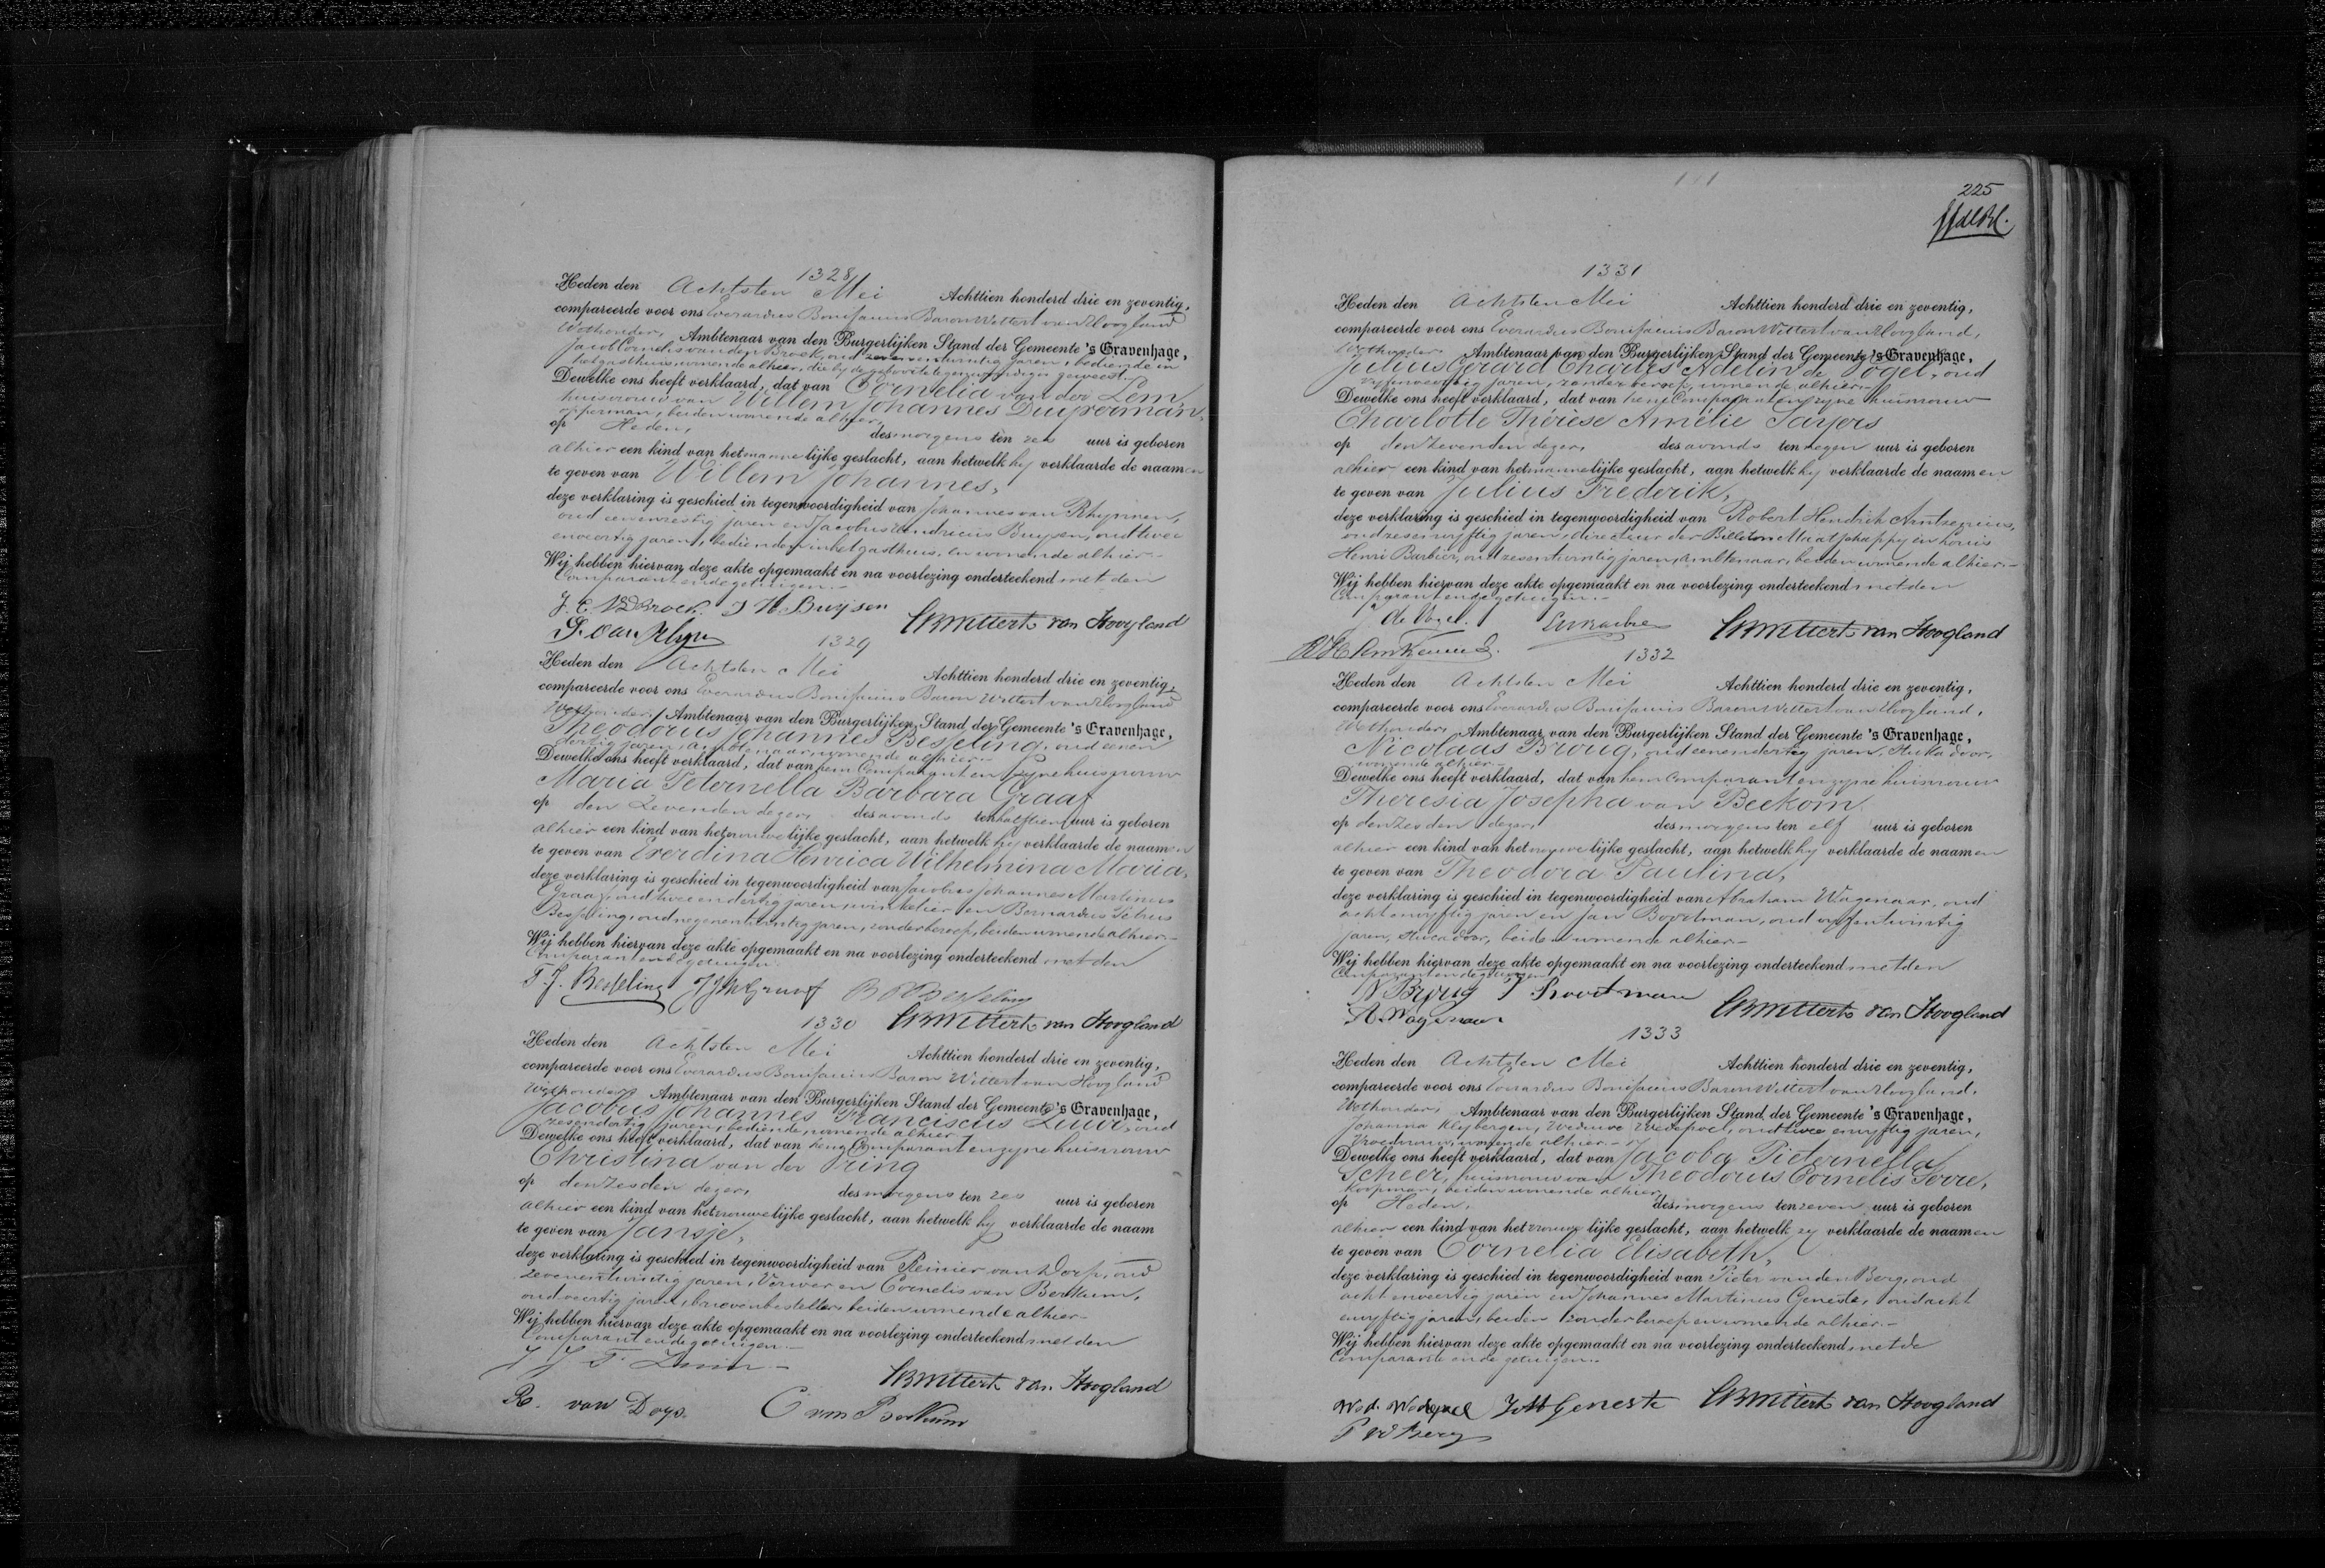 1328
Heden den Achtsten Mei Achttien honderd drie en zeventig,
compareerde voor ons Everardus Bonifacius Baron Wittert van Hoogland
Wethouder, Ambtenaar van den Burgerlijken Stand der Gemeente 's Gravenhage,
Jacob Cornelis van den Broek, oud zevenentwintig jaren, bediende in
het gasthuis, wonende alhier, die bij de geboorte tegenwoordig is geweest.-
Dewelke ons heeft verklaard, dat van Cornelia van der Lem,
huisvrouw van Willem Johannes Duijverman,
opperman, beiden wonende alhier,
op Heden, des morgens ten zes uur is geboren
alhier een kind van het mannelijke geslacht, aan hetwelk hy verklaarde de naamen
te geven van Willem Johannes,
deze verklaring is geschied in tegenwoordigheid van Johannes van Rhijnen,
oud eenenzestig jaren en Jacobus Hendricus Buijsen, oud twee
enveertig jaren, bedienden in het gasthuis, en wonende alhier.-
Wij hebben hiervan deze akte opgemaakt en na voorlezing onderteekend met den
Comparant en de getuigen.-
J. C. VD Broek. J H. Buijsen
EBWittert van Hoogland
1329
Heden den Achtsten Mei Achttien honderd drie en zeventig,
compareerde voor ons Everardus Bonifacius Baron Wittert van Hoogland
Wethouder, Ambtenaar van den Burgerlijken Stand der Gemeente 's Gravenhage,
Theodorus Johannes Besseling, oud eenen
dertig jaren, ambtenaar, wonende alhier.-
Dewelke ons heeft verklaard, dat van hem Comparant en zyne huisvrouw
Maria Peternella Barbara Graaf
op den zevenden dezer, des avonds ten halftien uur is geboren
alhier een kind van het vrouwelijke geslacht, aan hetwelk hy verklaarde de naamen
te geven van Everdina Henrica Wilhelmina Maria,
deze verklaring is geschied in tegenwoordigheid van Jacobus Johannes Martinus
Graaf, oud twee endertig jaren, winkelier en Bernardus Petrus
Besseling, oud negenentwintig jaren, zonder beroep, beiden wonende alhier.-
Wij hebben hiervan deze akte opgemaakt en na voorlezing onderteekend met den
Comparant en de getuigen.
T. J. Besseling JJMGraaf B P Besseling
1330 EBWittert van Hoogland
Heden den Achtsten Mei Achttien honderd drie en zeventig,
compareerde voor ons Everardus Bonifacius Baron Wittert van Hoogland
Wethouder, Ambtenaar van den Burgerlijken Stand der Gemeente 's Gravenhage,
Jacobus Johannes Franciscus, oud
zesendertig jaren, bediende, wonende alhier.-
Dewelke ons heeft verklaard, dat van hem Comparant en zyne huisvrouw
Christina van der Pring
op den zesden dezer, des morgens ten zes uur is geboren
alhier een kind van het vrouwelijke geslacht, aan hetwelk hy verklaarde de naam
te geven van Jansje,
deze verklaring is geschied in tegenwoordigheid van Reinier van Dorp, oud
zevenentwintig jaren, Verwer en Cornelis van Berkum,
oud veertig jaren, brievenbesteller, beiden wonende alhier.-
Wij hebben hiervan deze akte opgemaakt en na voorlezing onderteekend met den
Comparant en de getuigen.-
EBWittert van Hoogland
R. van Dorp. C van Berkum
225
1331
Heden den Achtsten Mei Achttien honderd drie en zeventig,
compareerde voor ons Everardus Bonifacius Baron Wittert van Hoogland,
Wethouder, Ambtenaar van den Burgerlijken Stand der Gemeente 's Gravenhage,
Julius Gerard Charles Adelin de Vogel, oud
vyfenveertig jaren, zonder beroep, wonende alhier.-
Dewelke ons heeft verklaard, dat van hem Comparant en zyne huisvrouw
Charlotte Thérèse Amélie Sayers
op den zevenden dezer, des avonds ten negen uur is geboren
alhier een kind van het mannelijke geslacht, aan hetwelk hy verklaarde de naamen
te geven van Julius Frederik,
deze verklaring is geschied in tegenwoordigheid van Robert Hendrik Arntzenius,
oud zesenvyftig jaren, directeur der Billiton Maatschappy en Louis
Henri Barbier, oud zesentwintig jaren, ambtenaar, beiden wonende alhier.-
Wij hebben hiervan deze akte opgemaakt en na voorlezing onderteekend met den
Comparant en de getuigen.-
de Vogel.
EBWittert van Hoogland
1332
Heden den Achtsten Mei Achttien honderd drie en zeventig,
compareerde voor ons Everardus Bonifacius Baron Wittert van Hoogland,
Wethouder, Ambtenaar van den Burgerlijken Stand der Gemeente 's Gravenhage,
Nicolaas Broug, oud eenendertig jaren, Stukadoor,
wonende alhier.-
Dewelke ons heeft verklaard, dat van hem Comparant en zyne huisvrouw
Theresia Josepha van Beekom
op den zesden dezer, des morgens ten elf uur is geboren
alhier een kind van het vrouwelijke geslacht, aan hetwelk hy verklaarde de naamen
te geven van Theodora Paulina,
deze verklaring is geschied in tegenwoordigheid van Abraham Wagenaar, oud
achtenvyftig jaren en Jan Bootman, oud vyfentwintig
jaren, stucadoor, beiden wonende alhier.-
Wij hebben hiervan deze akte opgemaakt en na voorlezing onderteekend met den
Comparant en de getuigen
N Broug J Bootman
A. Wagenaar EBWittert van Hoogland
1333
Heden den Achtsten Mei Achttien honderd drie en zeventig,
compareerde voor ons Everardus Bonifacius Baron Wittert van Hoogland,
Wethouder, Ambtenaar van den Burgerlijken Stand der Gemeente 's Gravenhage,
Johanna Kleybergen, Weduwe Wedepoel, oud twee envyftig jaren,
Vroedvrouw, wonende alhier.-
Dewelke ons heeft verklaard, dat van Jacoba Pieternella
Scheer, huisvrouw van Theodorus Cornelis Sorre,
Koopman, beiden wonende alhier,
op Heden, des morgens ten zeven uur is geboren
alhier een kind van het vrouwelijke geslacht, aan hetwelk zy verklaarde de naamen
te geven van Cornelia Elisabeth,
deze verklaring is geschied in tegenwoordigheid van Pieter van den Berg, oud
acht enveertig jaren en Johannes Martinus Geneste, oud acht
envyftig jaren, beiden zonder beroep en wonende alhier.-
Wij hebben hiervan deze akte opgemaakt en na voorlezing onderteekend met de
Comparante en de getuigen.-
Wed. Wedepoel JMGeneste EBWittert van Hoogland
P vd Berg